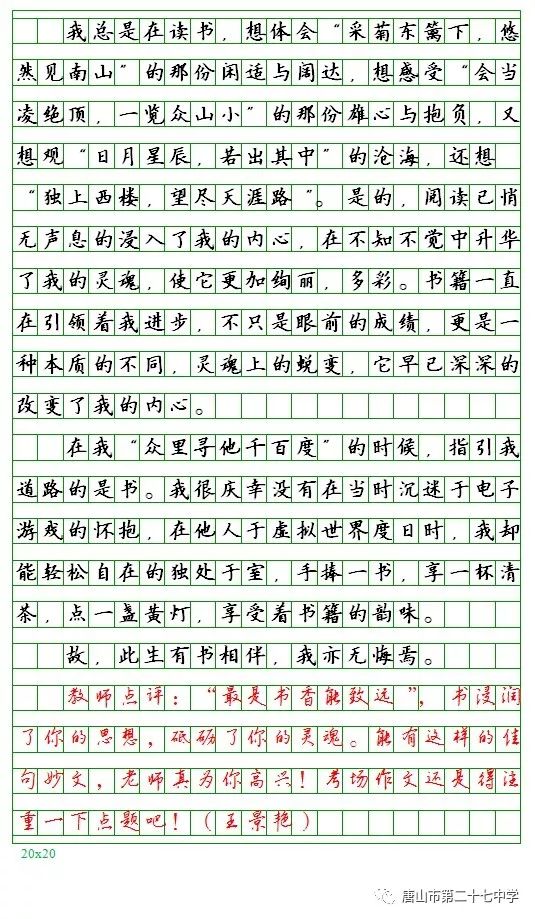 我总是在读书，想体会“采菊东篱下，悠
然见南山”的那份闲适与阔达，想感受“会当
凌绝顶，一览众山小”的那份雄心与抱负，又
想观“日月星辰，若出其中”的沧海，还想
“独上西楼，望尽天涯路”。是的，阅读已悄
无声息的浸入了我的内心，在不知不觉中升华
了我的灵魂，使它更加绚丽，多彩。书籍一直
在引领着我进步，不只是眼前的成绩，更是一
种本质的不同，灵魂上的蜕变，它早已深深的
改变了我的内心。
在我“众里寻他千百度”的时候，指引我
道路的是书。我很庆幸没有在当时沉迷于电子
游戏的怀抱，在他人于虚拟世界度日时，我却
能轻松自在的独处于室，手捧一书，享一杯清
茶，点一盏黄灯，享受着书籍的韵味。
故，此生有书相伴，我亦无悔焉。
教师点评：“最是书香能致远”，书浸润
了你的思想，砥砺了你的灵魂。能有这样的佳
句妙文，老师真为你高兴！考场作文还是得注
重一下点题吧！（王景艳）
20x20
唐山市第二十七中学